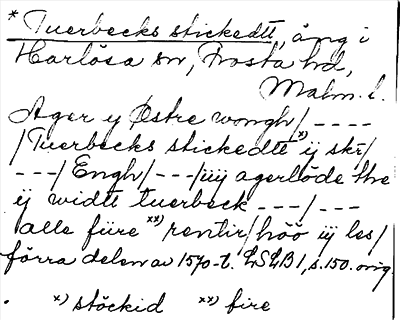 * Tuerbecks stickedtt, äng i
Harlösa sn, Frosta hd,
Malm. l.
Ager y Østre wongh/ ----
/Tuerbecks stickedtt x) ÿ skr/
---/ Engh/ ---/iiij agerløde the
ÿ widtt tuerbeck ---/---
alle fiire xx) rentir/ höö iÿ les/
förra delen av 1570-t. LSLB1, s. 150. orig.
x) stöckid xx) fire